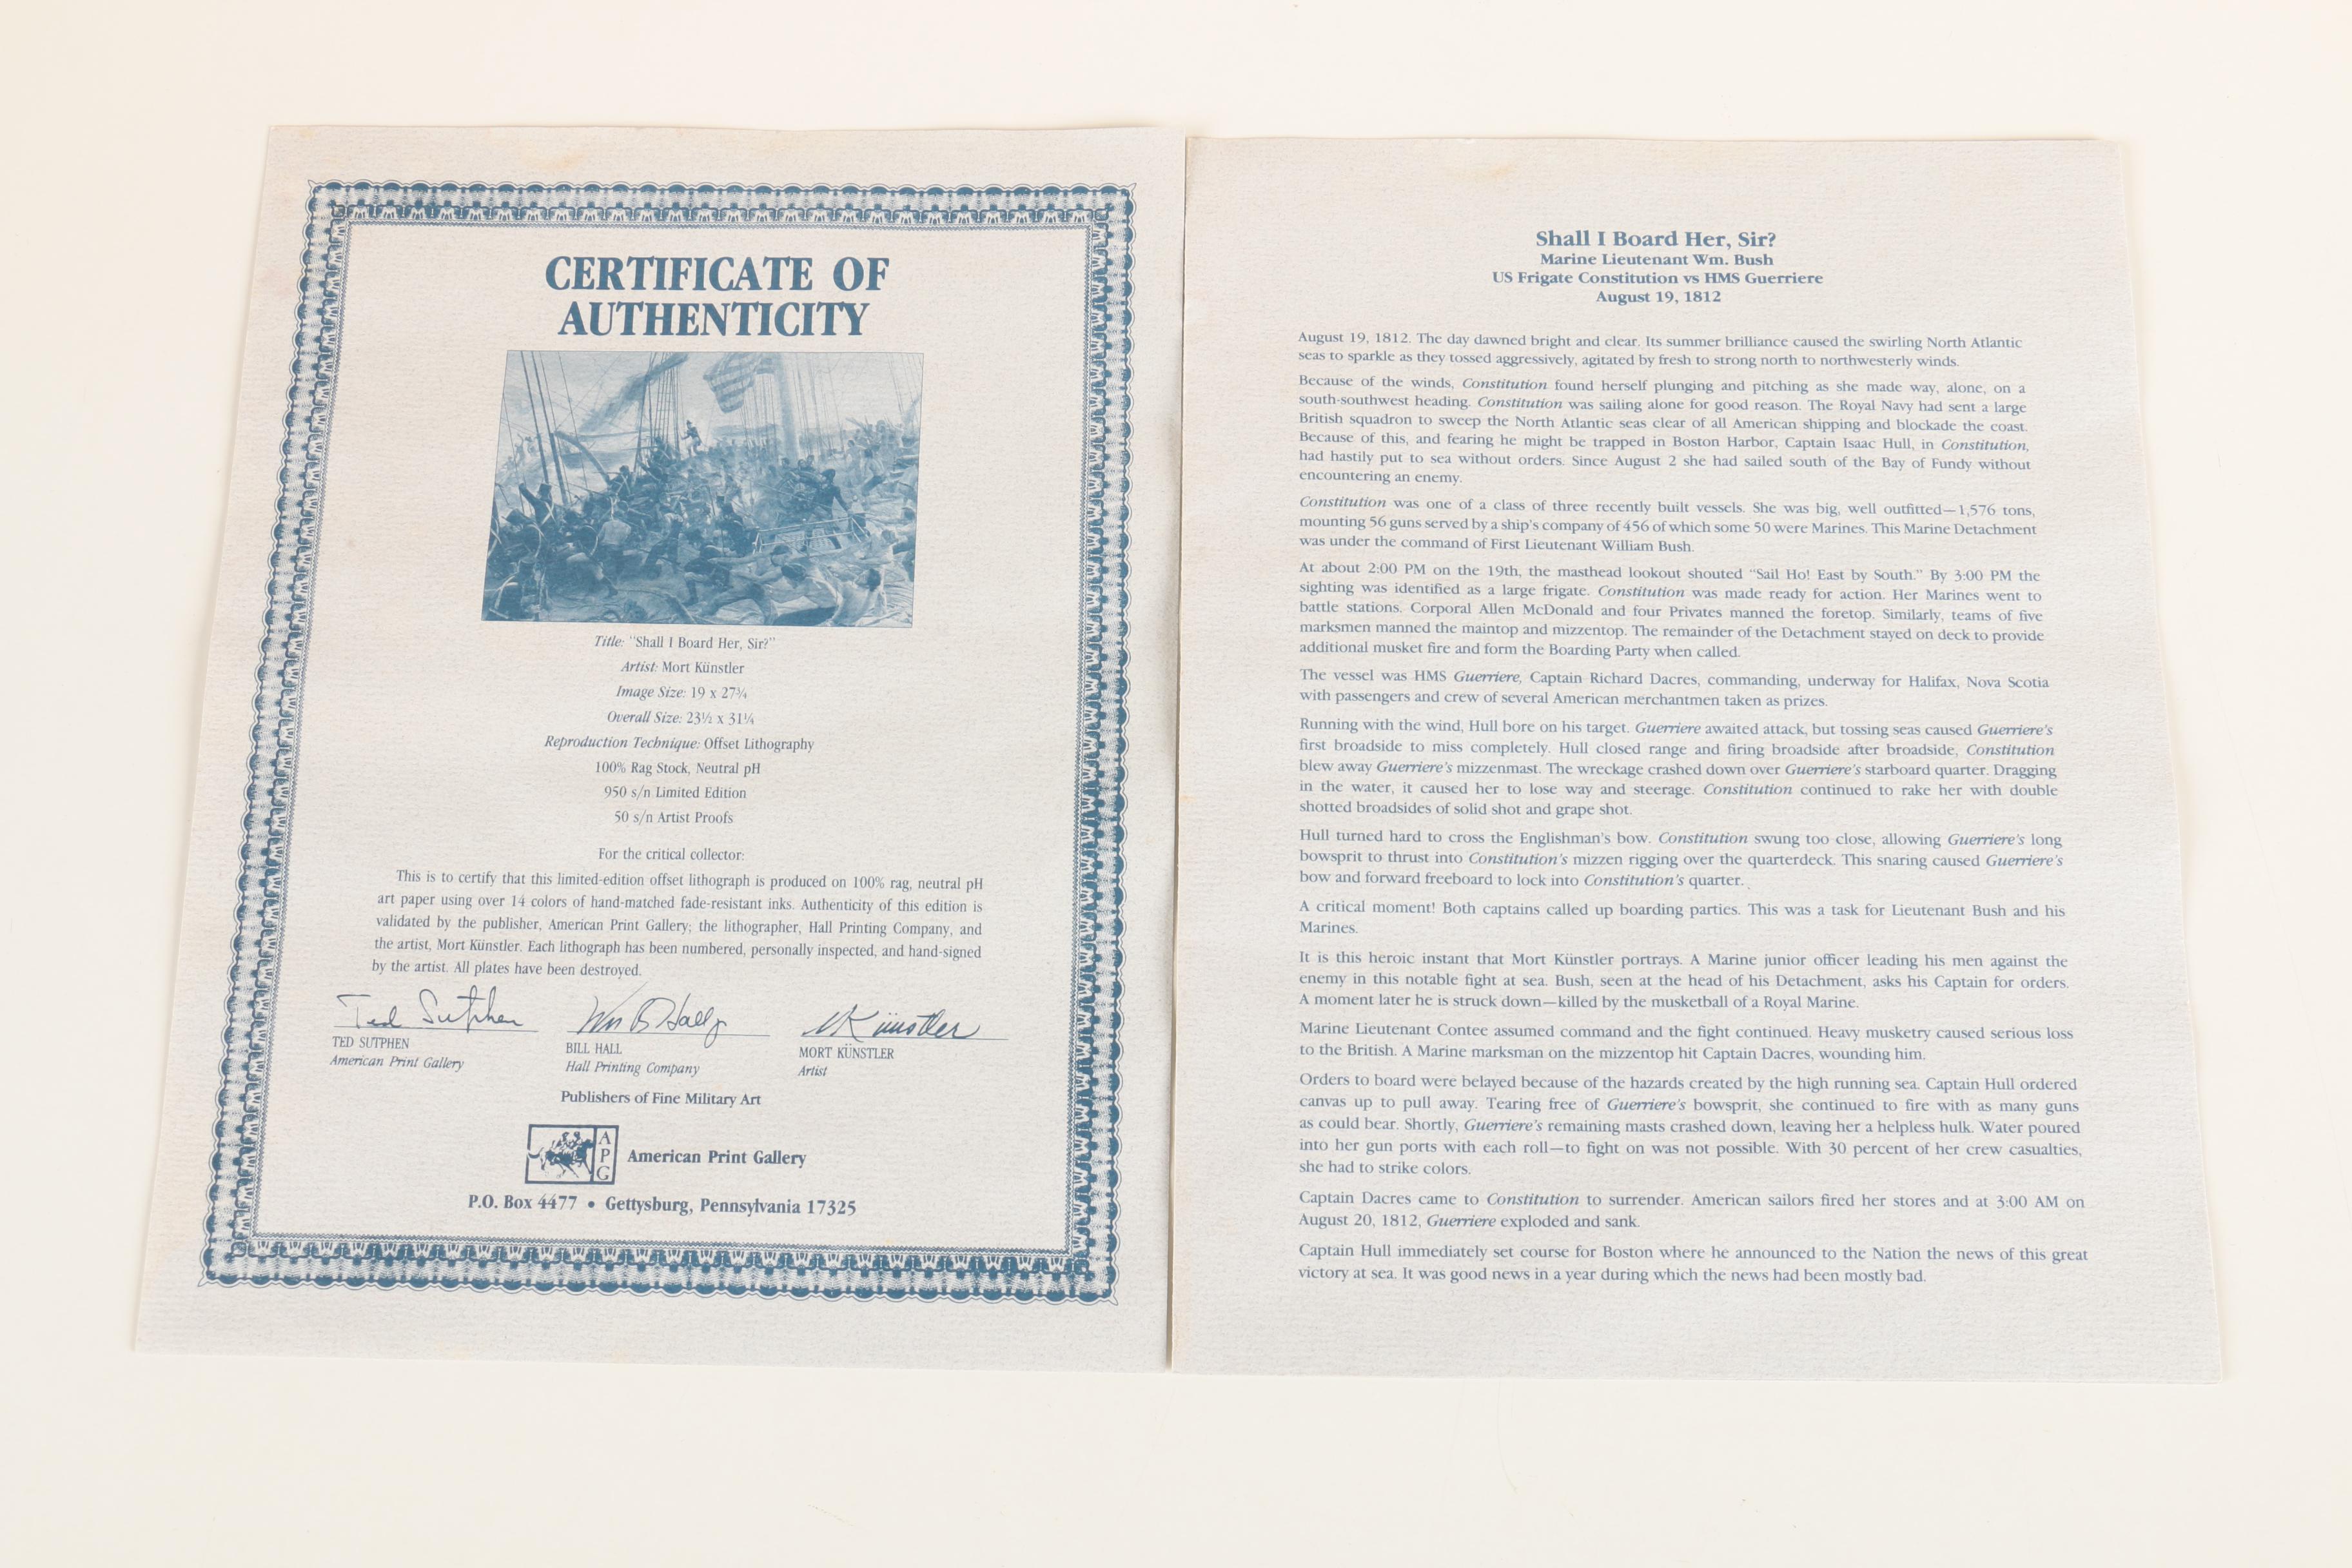 CERTIFICATE OF
AUTHENTICITY
Title: "Shall I Board Her, Sir?"
Artist: Mort Künstler
Image Size: 19 x 27¾
Overall Size: 23½ x 31¼
Reproduction Technique: Offset Lithography
100% Rag Stock, Neutral pH
950 s/n Limited Edition
50 s/n Artist Proofs
For the critical collector:
This is to certify that this limited-edition offset lithograph is produced on 100% rag, neutral pH
art paper using over 14 colors of hand-matched fade-resistant inks. Authenticity of this edition is
validated by the publisher, American Print Gallery; the lithographer, Hall Printing Company, and
the artist, Mort Künstler. Each lithograph has been numbered, personally inspected, and hand-signed
by the artist. All plates have been destroyed.
Ted Sutphen Wm B Hall Jr MKünstler
TED SUTPHEN BILL HALL MORT KÜNSTLER
American Print Gallery Hall Printing Company Artist
Publishers of Fine Military Art
APG American Print Gallery
P.O. Box 4477 • Gettysburg, Pennsylvania 17325
Shall I Board Her, Sir?
Marine Lieutenant Wm. Bush
US Frigate Constitution vs HMS Guerriere
August 19, 1812
August 19, 1812. The day dawned bright and clear. Its summer brilliance caused the swirling North Atlantic
seas to sparkle as they tossed aggressively, agitated by fresh to strong north to northwesterly winds.
Because of the winds, Constitution found herself plunging and pitching as she made way, alone, on a
south-southwest heading. Constitution was sailing alone for good reason. The Royal Navy had sent a large
British squadron to sweep the North Atlantic seas clear of all American shipping and blockade the coast.
Because of this, and fearing he might be trapped in Boston Harbor, Captain Isaac Hull, in Constitution,
had hastily put to sea without orders. Since August 2 she had sailed south of the Bay of Fundy without
encountering an enemy.
Constitution was one of a class of three recently built vessels. She was big, well outfitted—1,576 tons,
mounting 56 guns served by a ship's company of 456 of which some 50 were Marines. This Marine Detachment
was under the command of First Lieutenant William Bush.
At about 2:00 PM on the 19th, the masthead lookout shouted "Sail Ho! East by South." By 3:00 PM the
sighting was identified as a large frigate. Constitution was made ready for action. Her Marines went to
battle stations. Corporal Allen McDonald and four Privates manned the foretop. Similarly, teams of five
marksmen manned the maintop and mizzentop. The remainder of the Detachment stayed on deck to provide
additional musket fire and form the Boarding Party when called.
The vessel was HMS Guerriere, Captain Richard Dacres, commanding, underway for Halifax, Nova Scotia
with passengers and crew of several American merchantmen taken as prizes.
Running with the wind, Hull bore on his target. Guerriere awaited attack, but tossing seas caused Guerriere's
first broadside to miss completely. Hull closed range and firing broadside after broadside, Constitution
blew away Guerriere's mizzenmast. The wreckage crashed down over Guerriere's starboard quarter. Dragging
in the water, it caused her to lose way and steerage. Constitution continued to rake her with double
shotted broadsides of solid shot and grape shot.
Hull turned hard to cross the Englishman's bow. Constitution swung too close, allowing Guerriere's long
bowsprit to thrust into Constitution's mizzen rigging over the quarterdeck. This snaring caused Guerriere's
bow and forward freeboard to lock into Constitution's quarter.
A critical moment! Both captains called up boarding parties. This was a task for Lieutenant Bush and his
Marines.
It is this heroic instant that Mort Künstler portrays. A Marine junior officer leading his men against the
enemy in this notable fight at sea. Bush, seen at the head of his Detachment, asks his Captain for orders.
A moment later he is struck down—killed by the musketball of a Royal Marine.
Marine Lieutenant Contee assumed command and the fight continued. Heavy musketry caused serious loss
to the British. A Marine marksman on the mizzentop hit Captain Dacres, wounding him.
Orders to board were belayed because of the hazards created by the high running sea. Captain Hull ordered
canvas up to pull away. Tearing free of Guerriere's bowsprit, she continued to fire with as many guns
as could bear. Shortly, Guerriere's remaining masts crashed down, leaving her a helpless hulk. Water poured
into her gun ports with each roll—to fight on was not possible. With 30 percent of her crew casualties,
she had to strike colors.
Captain Dacres came to Constitution to surrender. American sailors fired her stores and at 3:00 AM on
August 20, 1812, Guerriere exploded and sank.
Captain Hull immediately set course for Boston where he announced to the Nation the news of this great
victory at sea. It was good news in a year during which the news had been mostly bad.